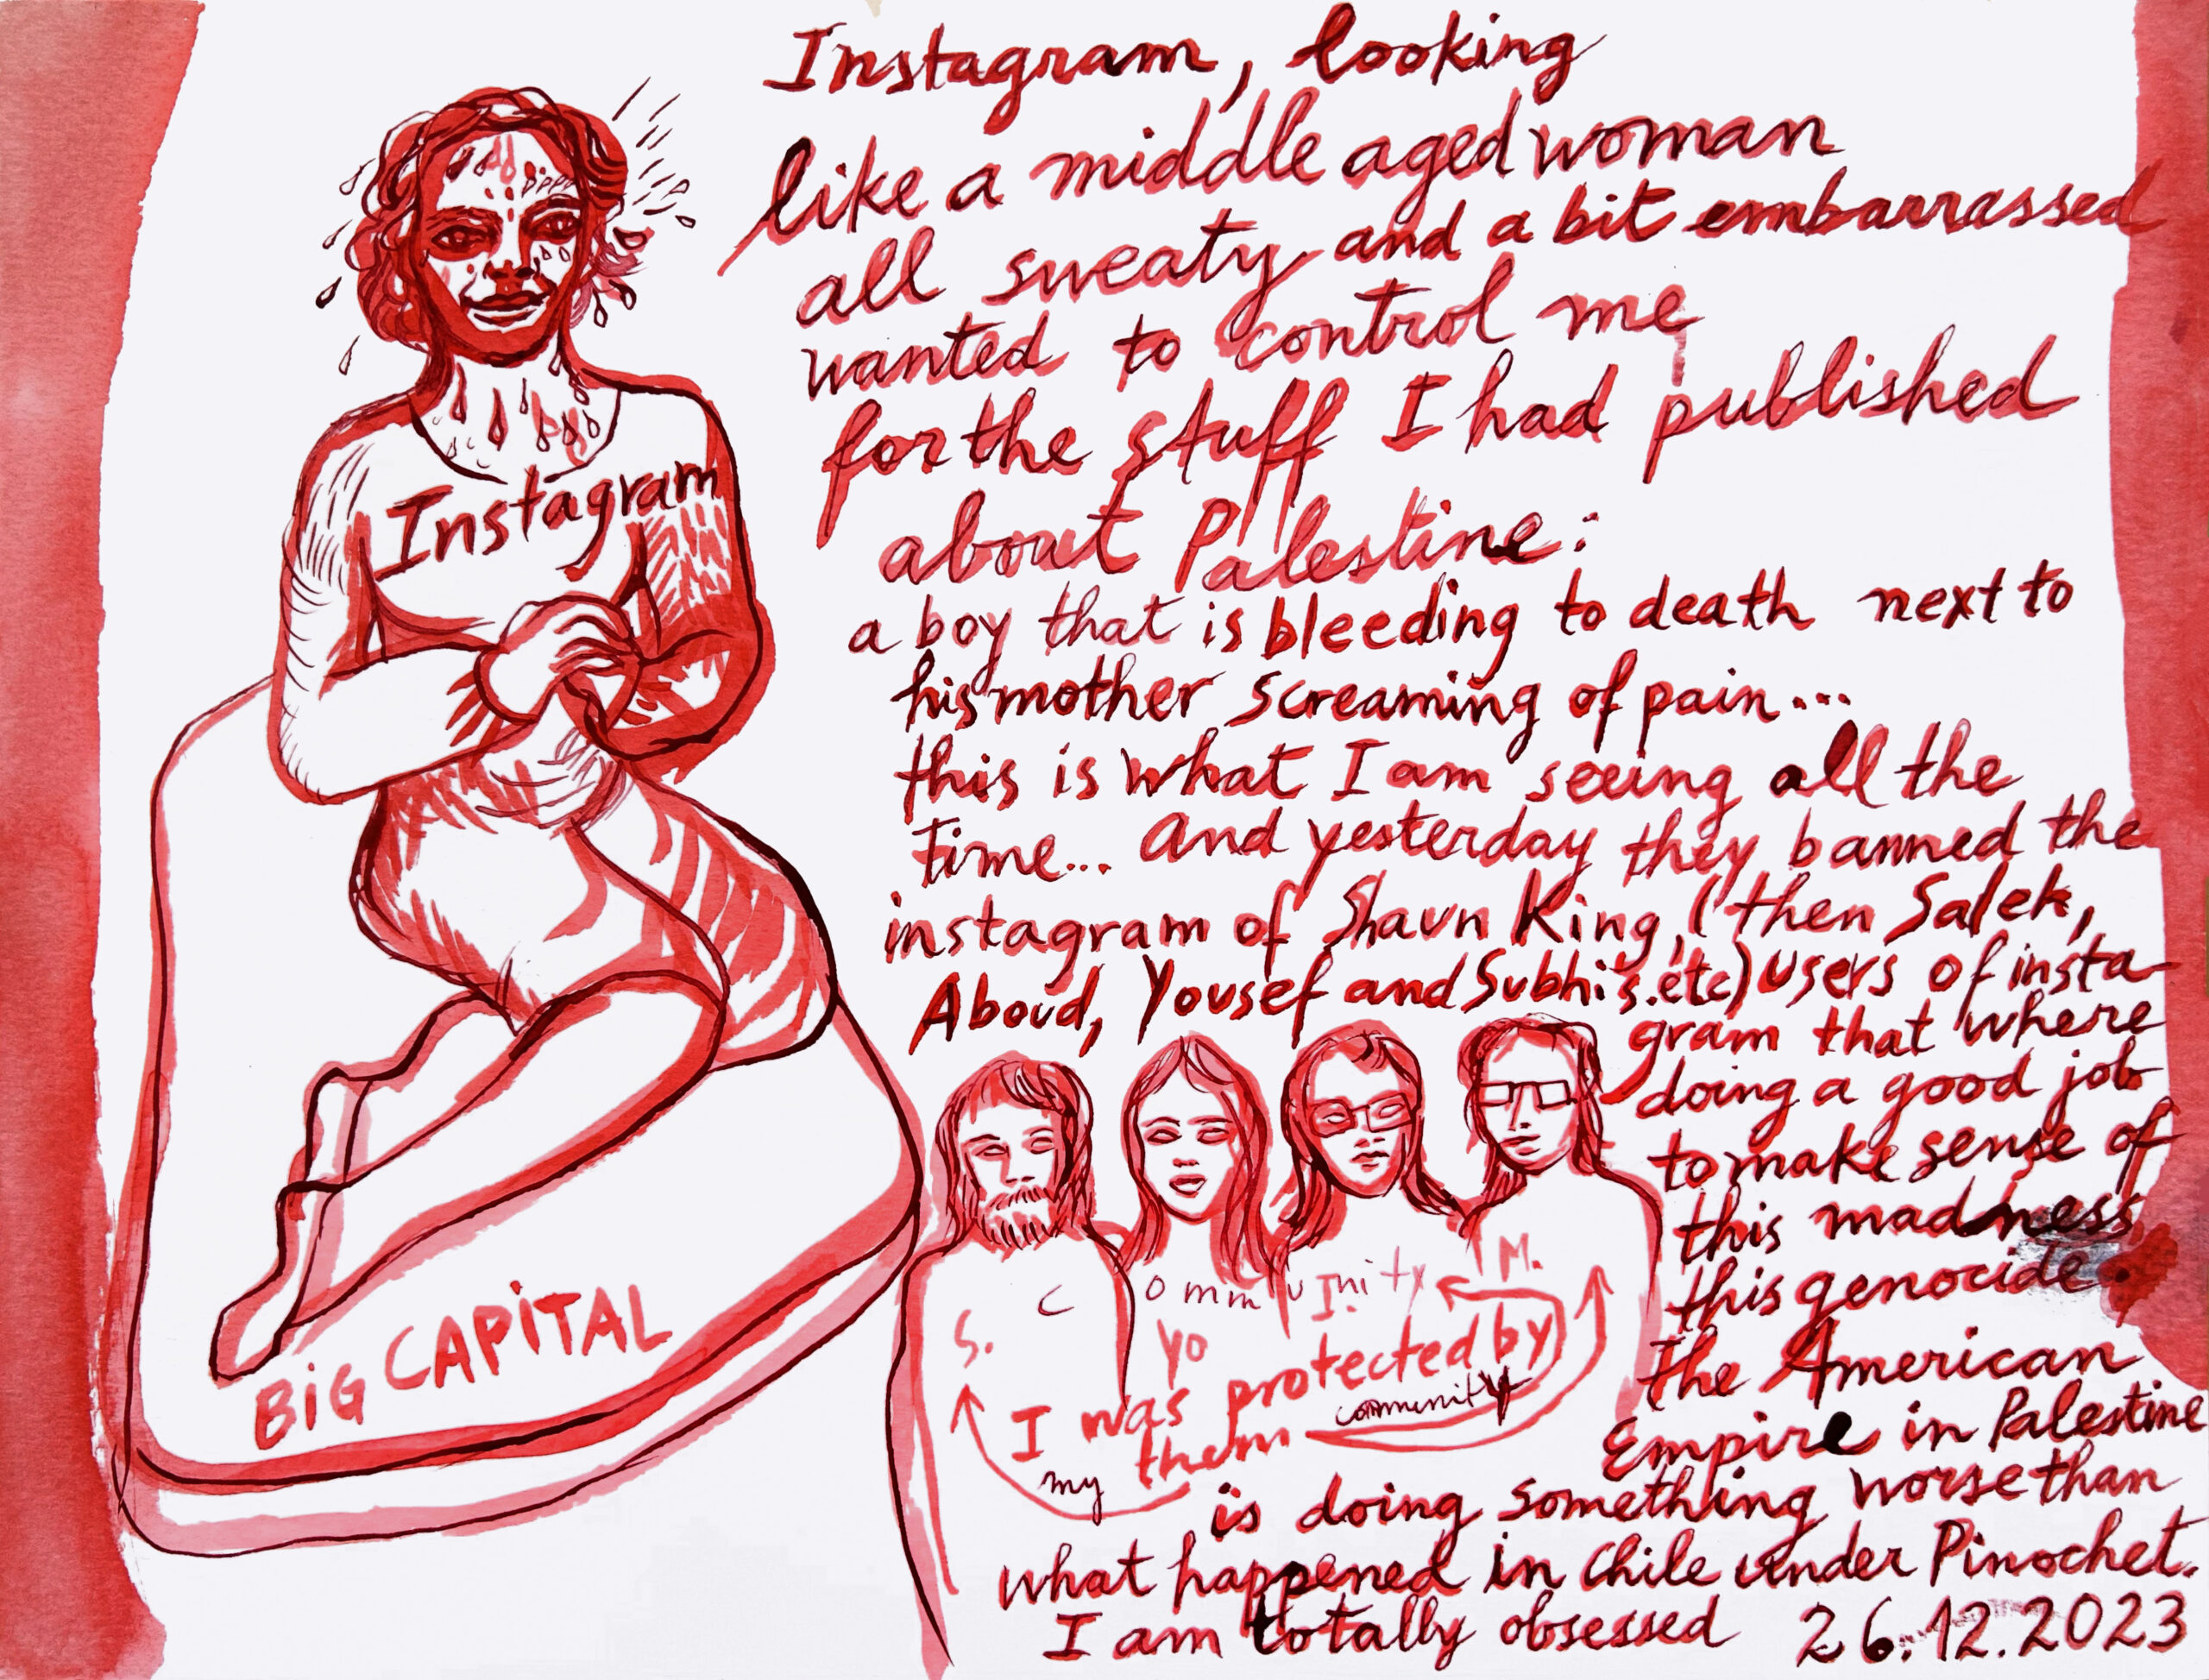 Instagram, looking
like a middle aged woman
all sweaty and a bit embarrassed
wanted to control me
for the stuff I had published
about Palestine:
a boy that is bleeding to death next to
his mother screaming of pain...
this is what I am seeing all the
time... And yesterday they banned the
instagram of Shaun King, (then Saleh,
Aboud, Yousef and Subhi's.etc) users of insta-
gram that where
doing a good job
to make sense of
this madness
this genocide
The American
Empire in Palestine
is doing something worse than
what happened in Chile under Pinochet.
I am totally obsessed 26.12.2023
Instagram
BiG CAPiTAL
Community
S. yo I. M.
I was protected by
them community
my